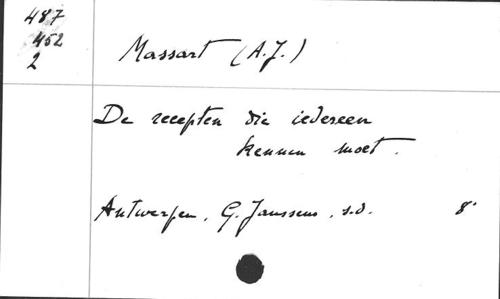 487
452
2
Massart (A.J.)
De recepten die iedereen
kennen moet.
Antwerpen, G. Janssens, s.d. 8°